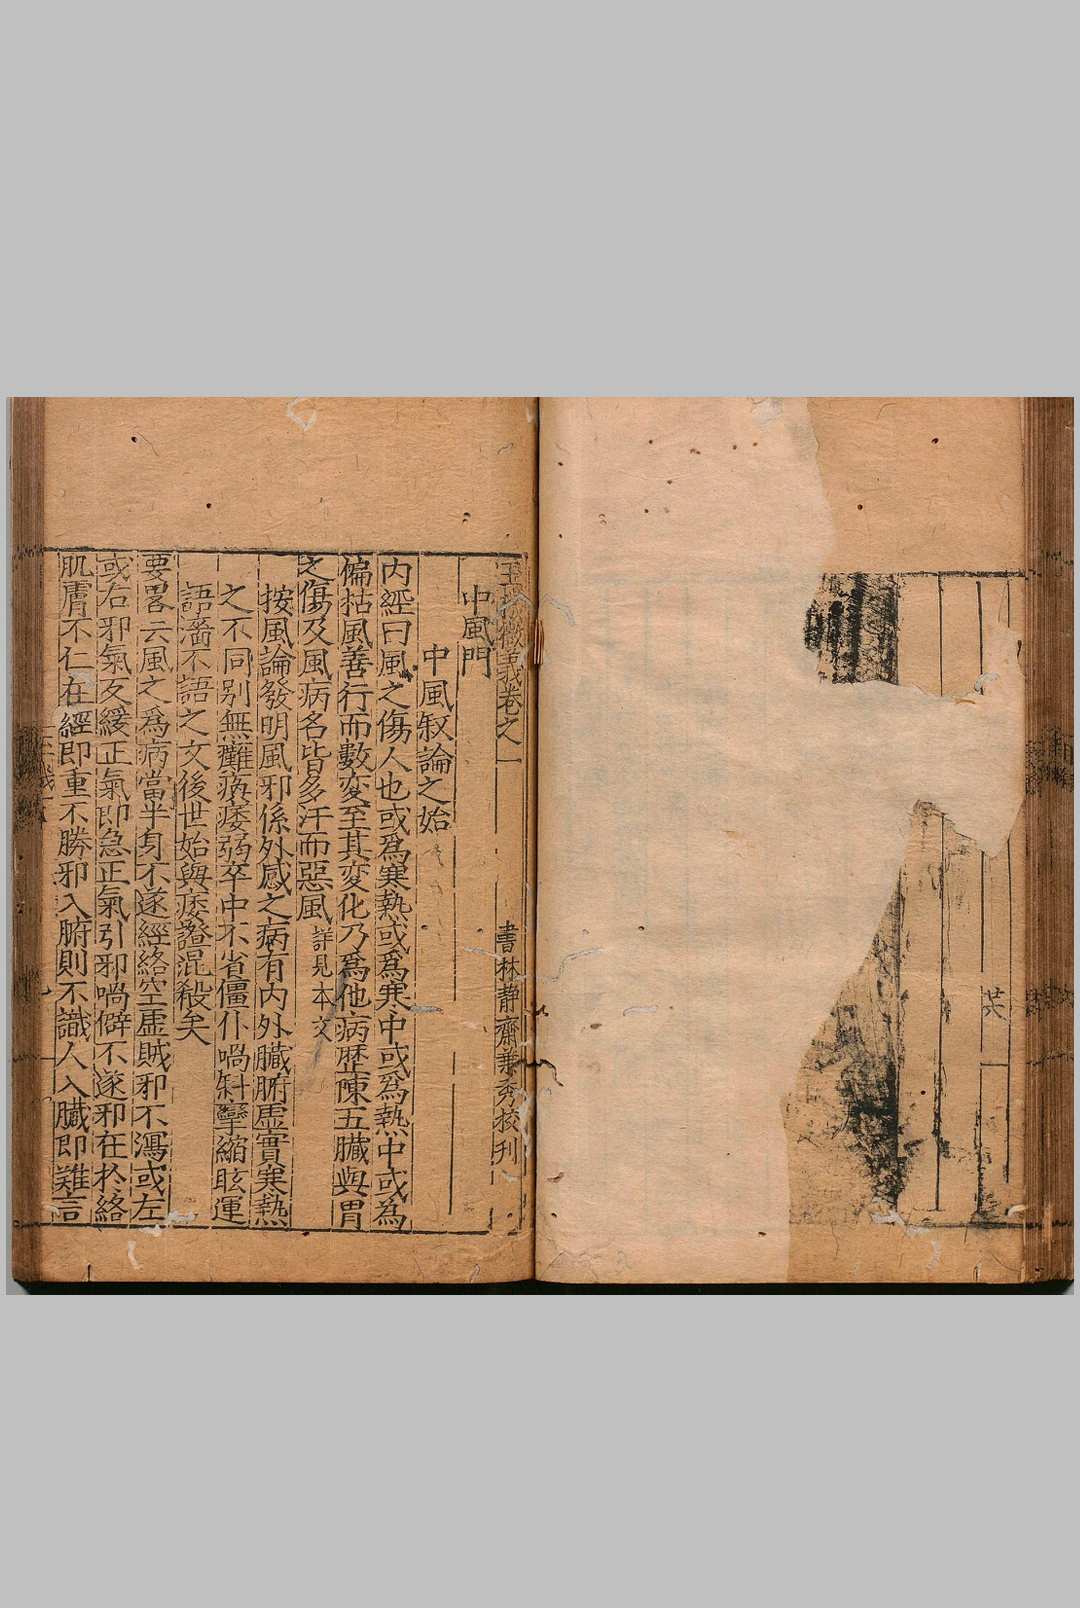 玉機微義卷之一　書林靜齋兼秀校刊
中風門
中風叙論之始
内經曰風之傷人也或爲寒熱或爲寒中或爲熱中或爲
偏枯風善行而數変至其変化乃爲他病歷陳五臟與胃
之傷及風病名皆多汗而惡風詳見本文
按風論發明風邪係外感之病有内外臟腑虛實寒熱
之不同别無癱瘓痿弱卒中不省僵仆喎斜攣縮眩運
語濇不語之文後世始與痿證混殺矣
要畧云風之爲病當半身不遂經絡空虛賊邪不瀉或左
或右邪氣反緩正氣即急正氣引邪喎僻不遂邪在於絡
肌膚不仁在經即重不勝邪入腑則不識人入臟即難言